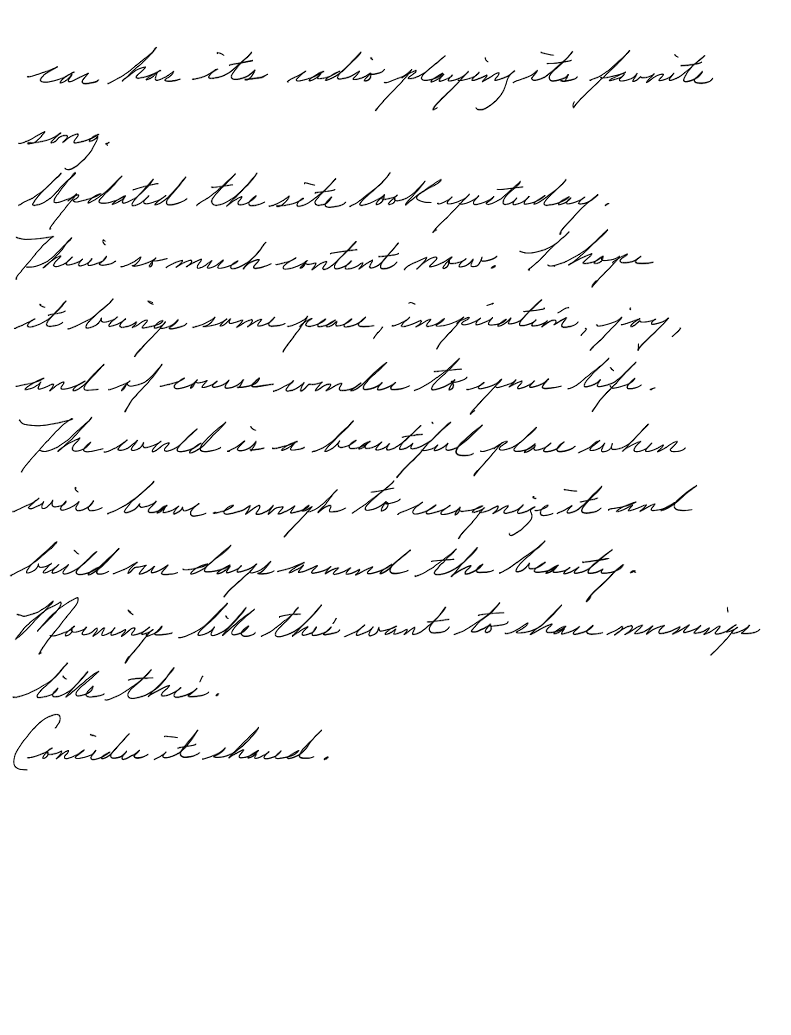 car has its radio playing its favorite
song.
Updated the site look yesterday.
There's so much content now. I hope
it brings some peace, inspiration, joy,
and of course wonder to your life.
The world is a beautiful place when
we're brave enough to recognize it and
build our days around the beauty.
Mornings like this want to share mornings
like this.
Consider it shared.